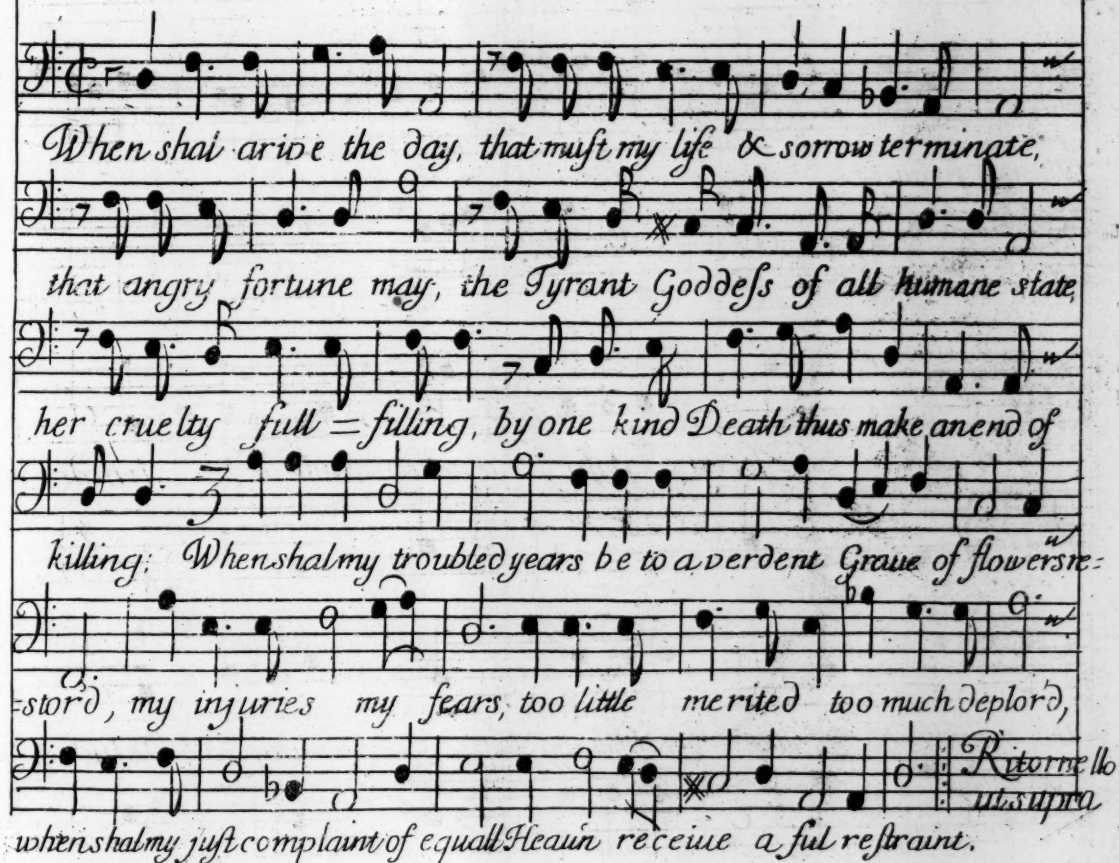 When shal arive the day, that must my life & sorrow terminate,
that angry fortune may, the Tyrant Goddess of all humane state,
her cruelty full = filling, by one kind Death thus make an end of
3
killing; When shal my troubled years be to a verdent Graue of flowers re=
=stor'd, my injuries my fears, too little merited too much deplor'd,
Ritornello
ut supra
when shal my just complaint of equall Heau'n receiue a ful restraint.